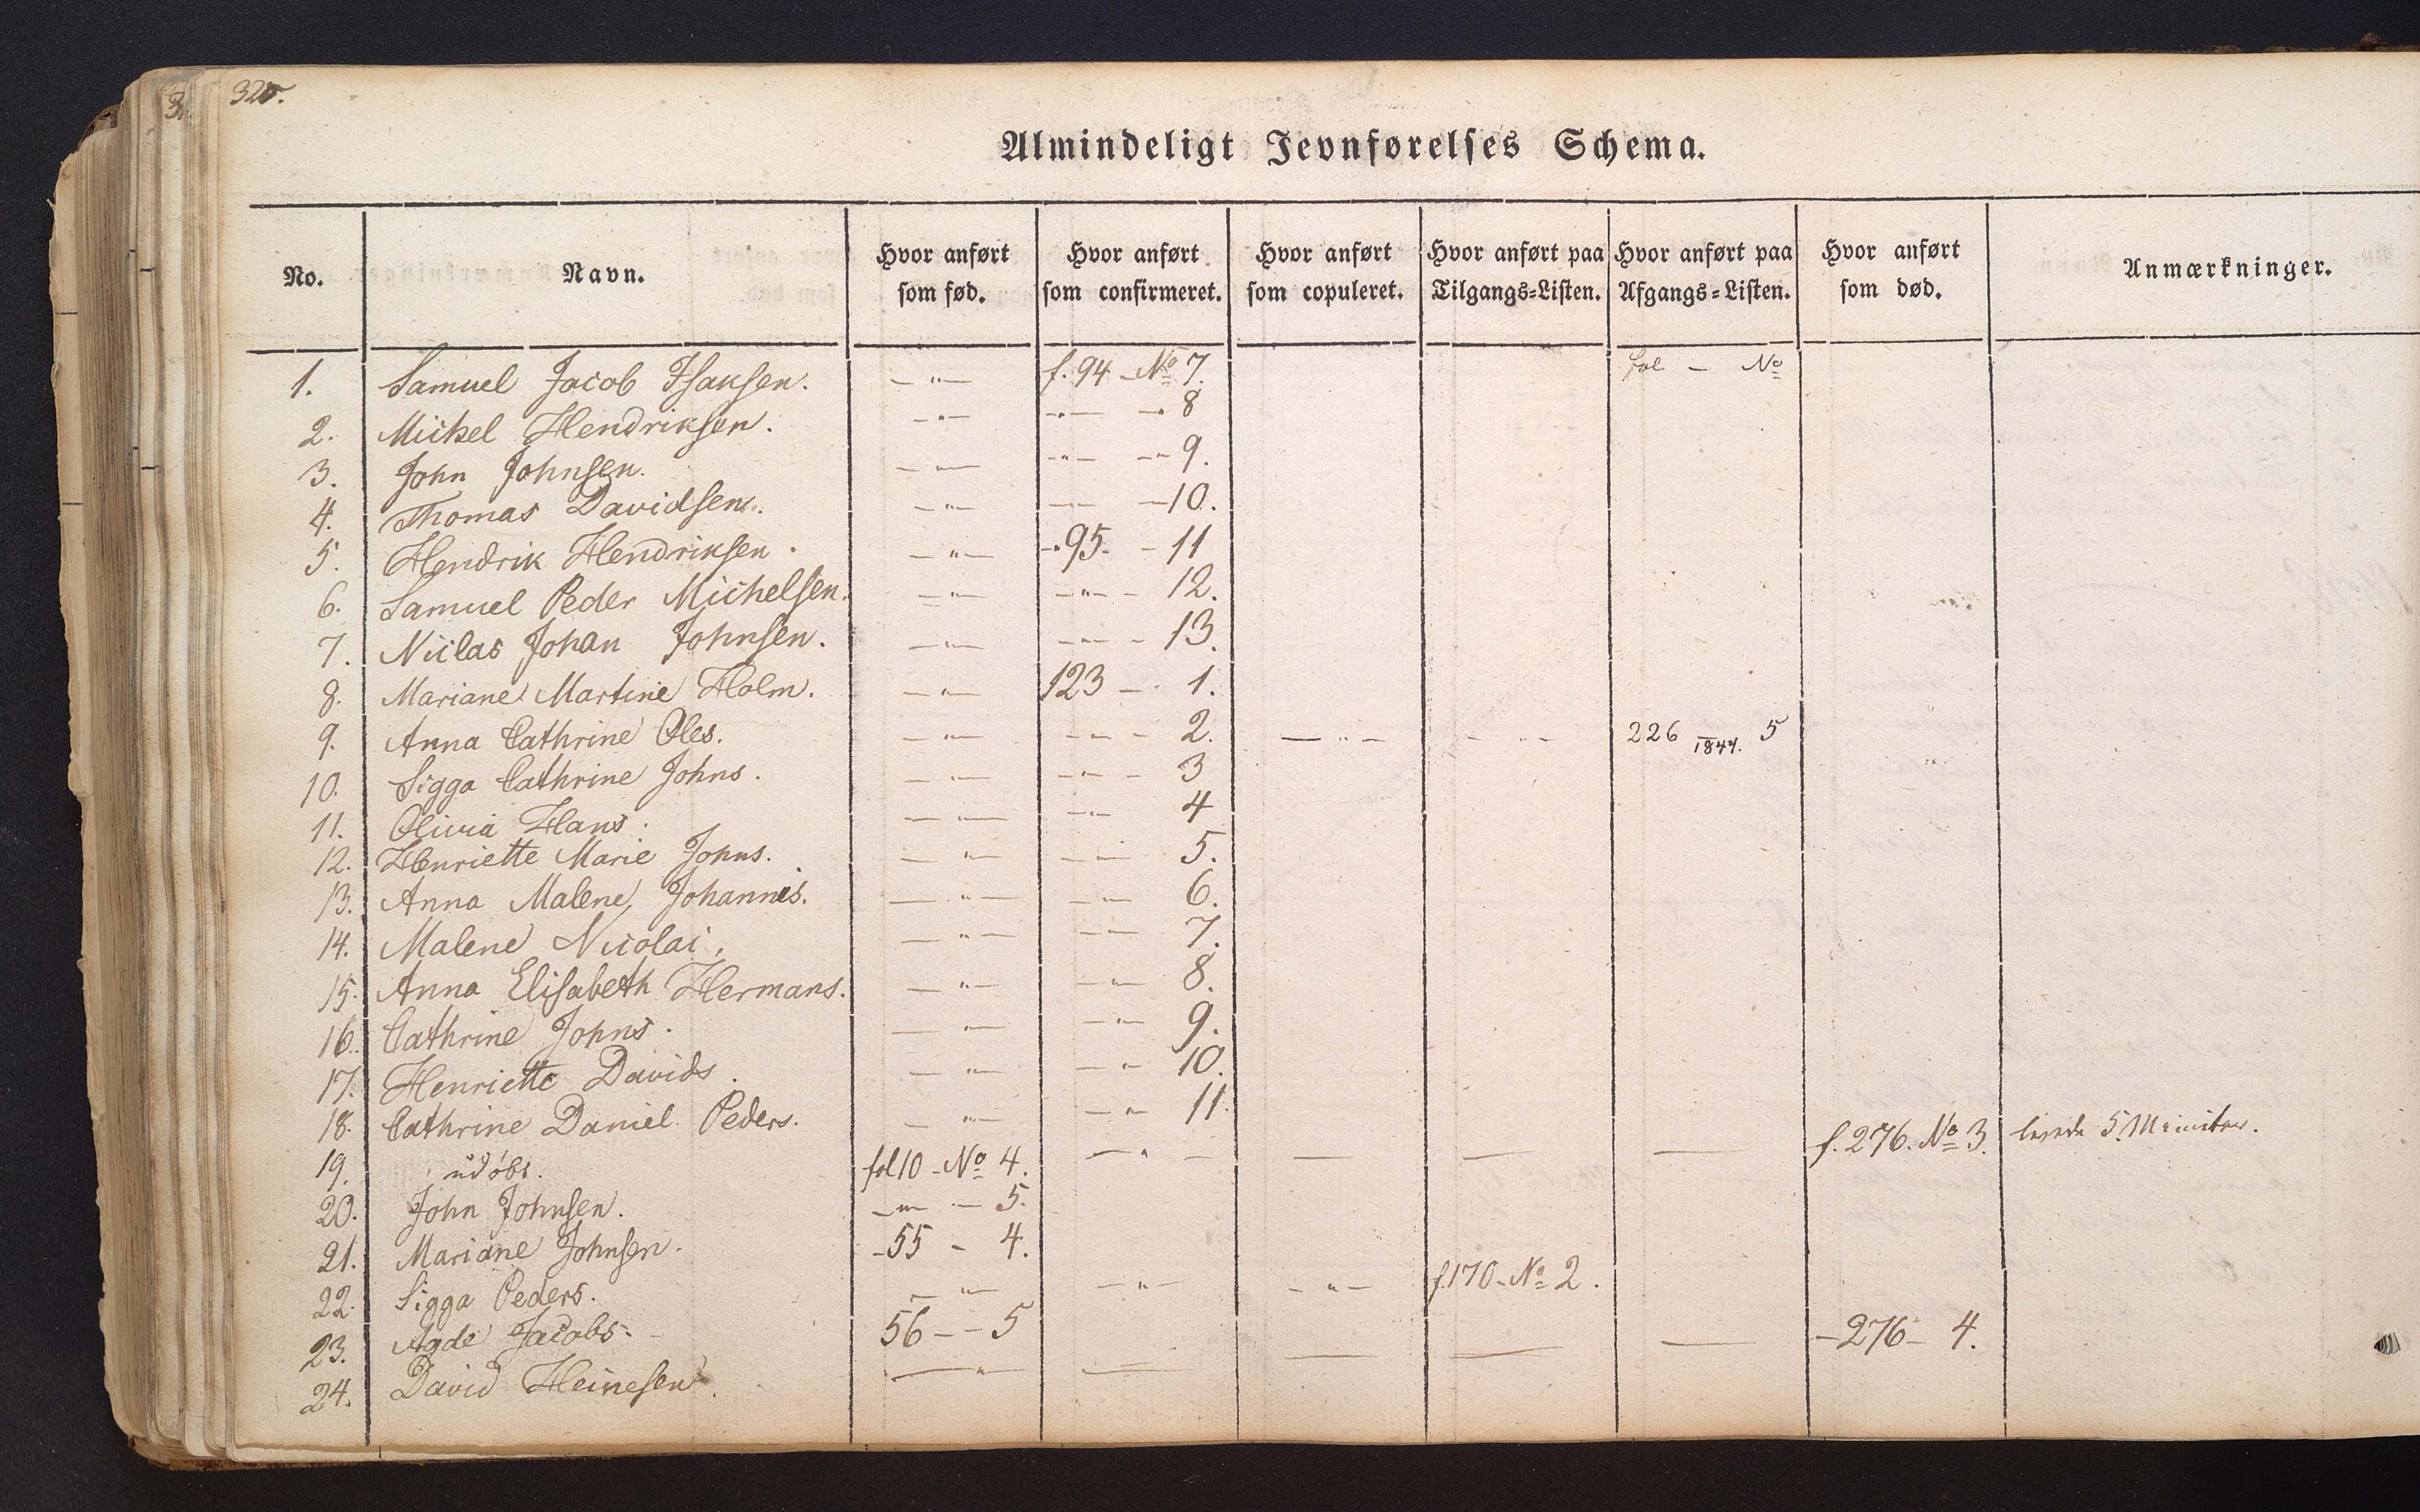 325.
Almindeligt Jevnførelses Schema.
No. Navn. Hvor anført som fød. Hvor anført som confirmeret. Hvor anført som copuleret. Hvor anført paa Tilgangs-Listen. Hvor anført paa Afgangs-Listen. Hvor anført som død. Anmærkninger.
1. Samuel Jacob Isaksen. — " — f. 94 - No 7. fol - No
2. Michel Hendriksen. — " — — " — — " 8
3. John Johnsen. — " — — " — — " 9.
4. Thomas Davidsen. — " — — " — — 10.
5. Hendrik Hendriksen. — " — - " 95. - 11
6. Samuel Peder Michelsen. — " — — " — - 12.
7. Niclas Johan Johnsen. — " — — " — - 13.
8. Mariane Martine Holm. — " — 123 — - 1.
9. Anna Cathrine Oles. — " — — " — - 2. — " — — " — 226 — 1844. 5
10. Sigga Cathrine Johns. — " — — " — - 3
11. Olivia Hans. — " — — " — 4
12. Henriette Marie Johns. — " — — " — 5.
13. Anna Malene Johannes. — " — — " — 6.
14. Malene Nicolai. — " — — " — 7.
15. Anna Elisabeth Hermans. — " — — " — 8.
16. Cathrine Johns. — " — — " — 9.
17. Henriette Davids. — " — — " — 10.
18. Cathrine Daniel Peders. — " — — " — 11.
19. udøbt. fol 10 - No 4. — " — — — — f. 276. No 3. levede 5 Minuter.
20. John Johnsen. — " — — 5.
21. Mariane Johnsen. - 55 - 4.
22. Sigga Peders. — " — — " — — " — f. 170 - No 2.
23. Jacobs. 56 — - 5 — — — - 276 - 4.
24. David Heinesen. — " — —